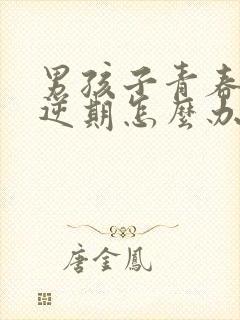 男孩子青春
逆期怎麼办
唐金鳳